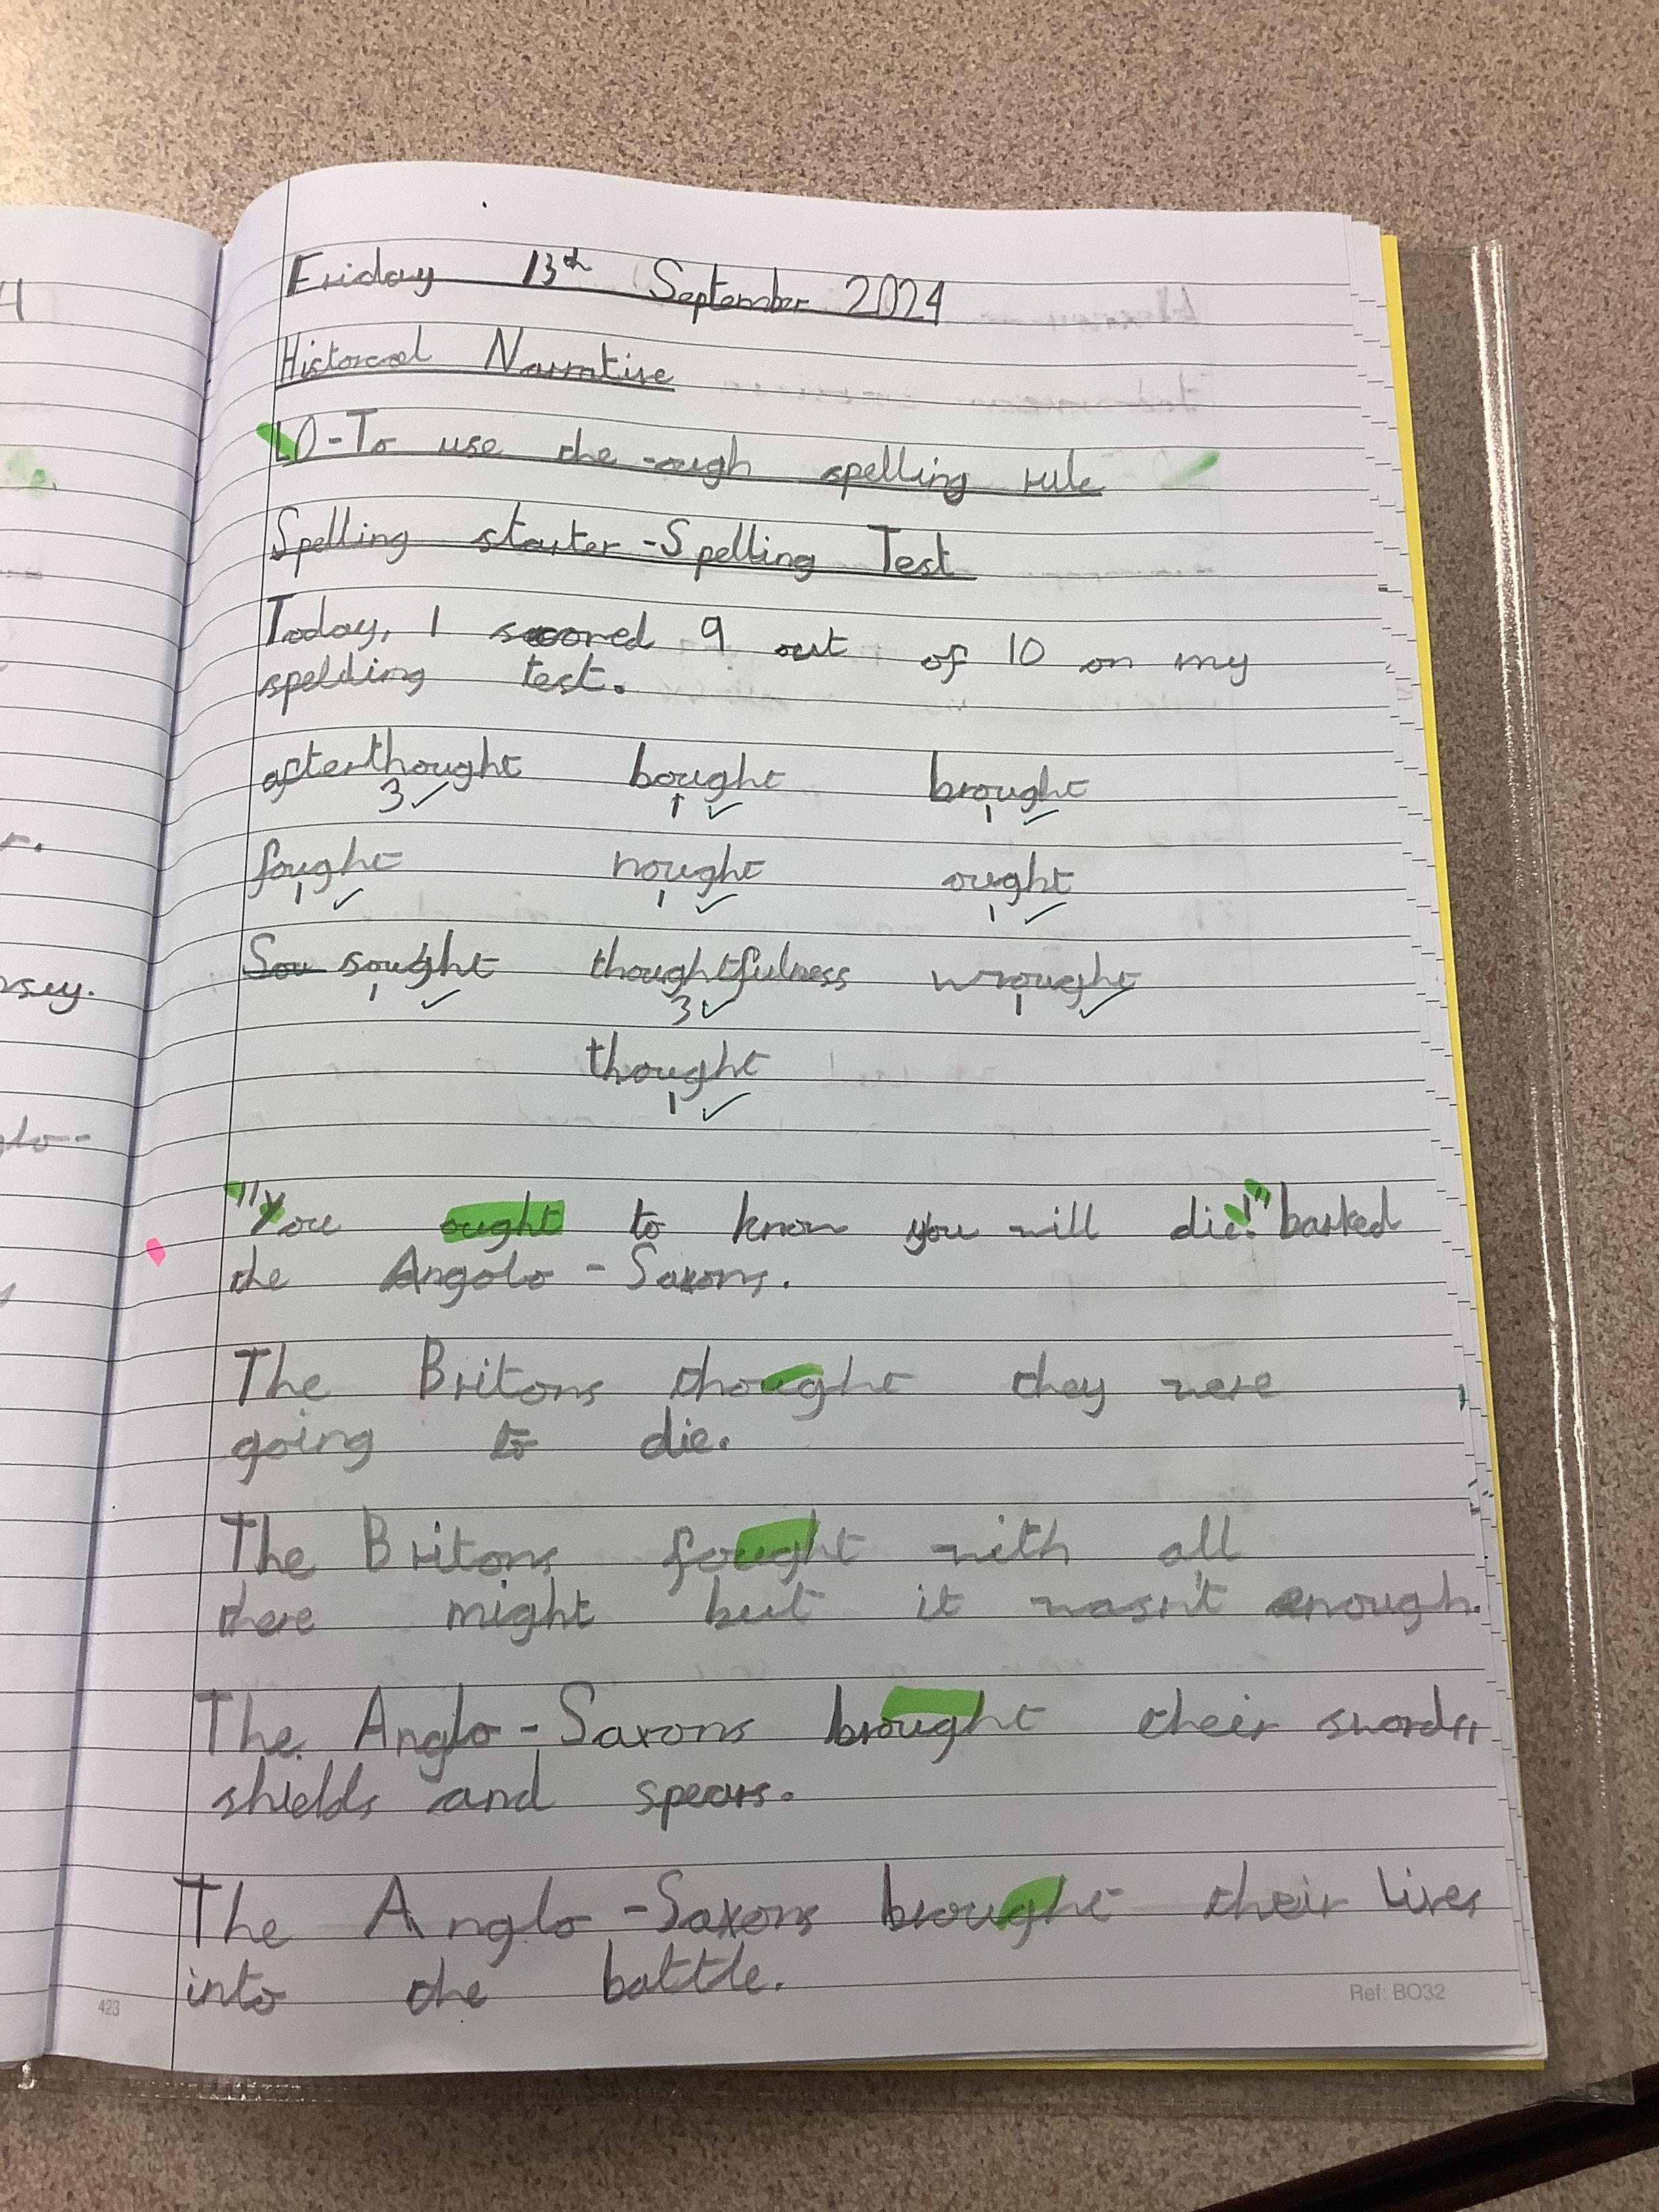 Friday 13th September 2024
Historcal Narrative
LO-To use the -ough spelling rule
Spelling starter -Spelling Test
Today, I scored 9 out of 10 on my
spelding test.
afterthought bought brought
3 1 1
fought nought ought
1 1 1
Sou sought thoughtfulness wrought
1 3 1
thought
1
"You ought to know you will die!" barked
the Angolo - Saxons.
The Britons thought they were
going to die.
The Britons fought with all
there might but it wasn't enough.
The Anglo - Saxons brought their swords,
shields and spears.
The Anglo -Saxons brought their lives
into the battle.
423
Ref: BO32
nsey.
glo-